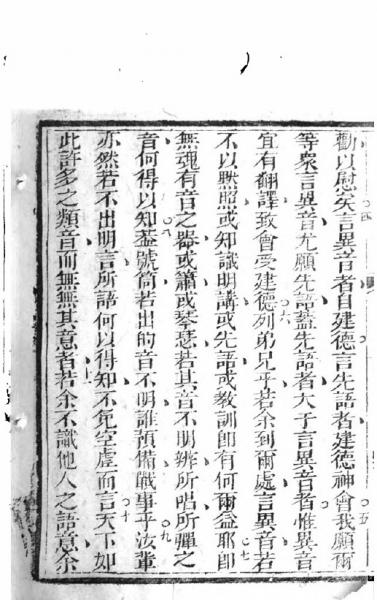 勸以慰矣言異音者自建德言先語者建德神會我願爾
等衆言異音尤願先語蓋先語者大于言異音者惟異音
宜有翻譯致會受建德列弟兄乎若余到爾處言異音若
不以默照或知識明講或先語或教訓卽有何爾益耶卽
無魂有音之器或簫或琴瑟若其音不明辨所唱所彈之
音何得以知蓋號筒若出的音不明誰預備戰事乎汝輩
亦然若不出明言所語何以得知不免空虛而言天下如
此許多之類音而無無其意者若余不識他人之語意余